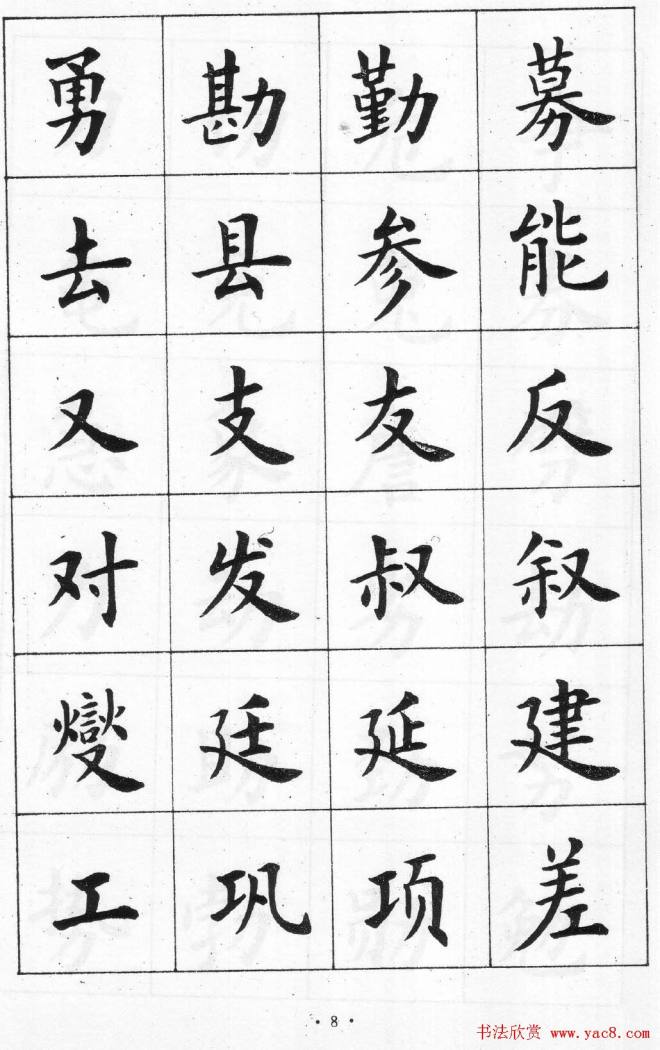 勇 勘 勤 募
去 县 参 能
又 支 友 反
对 发 叔 叙
燮 廷 延 建
工 巩 项 差
· 8 ·
书法欣赏 www.yac8.com